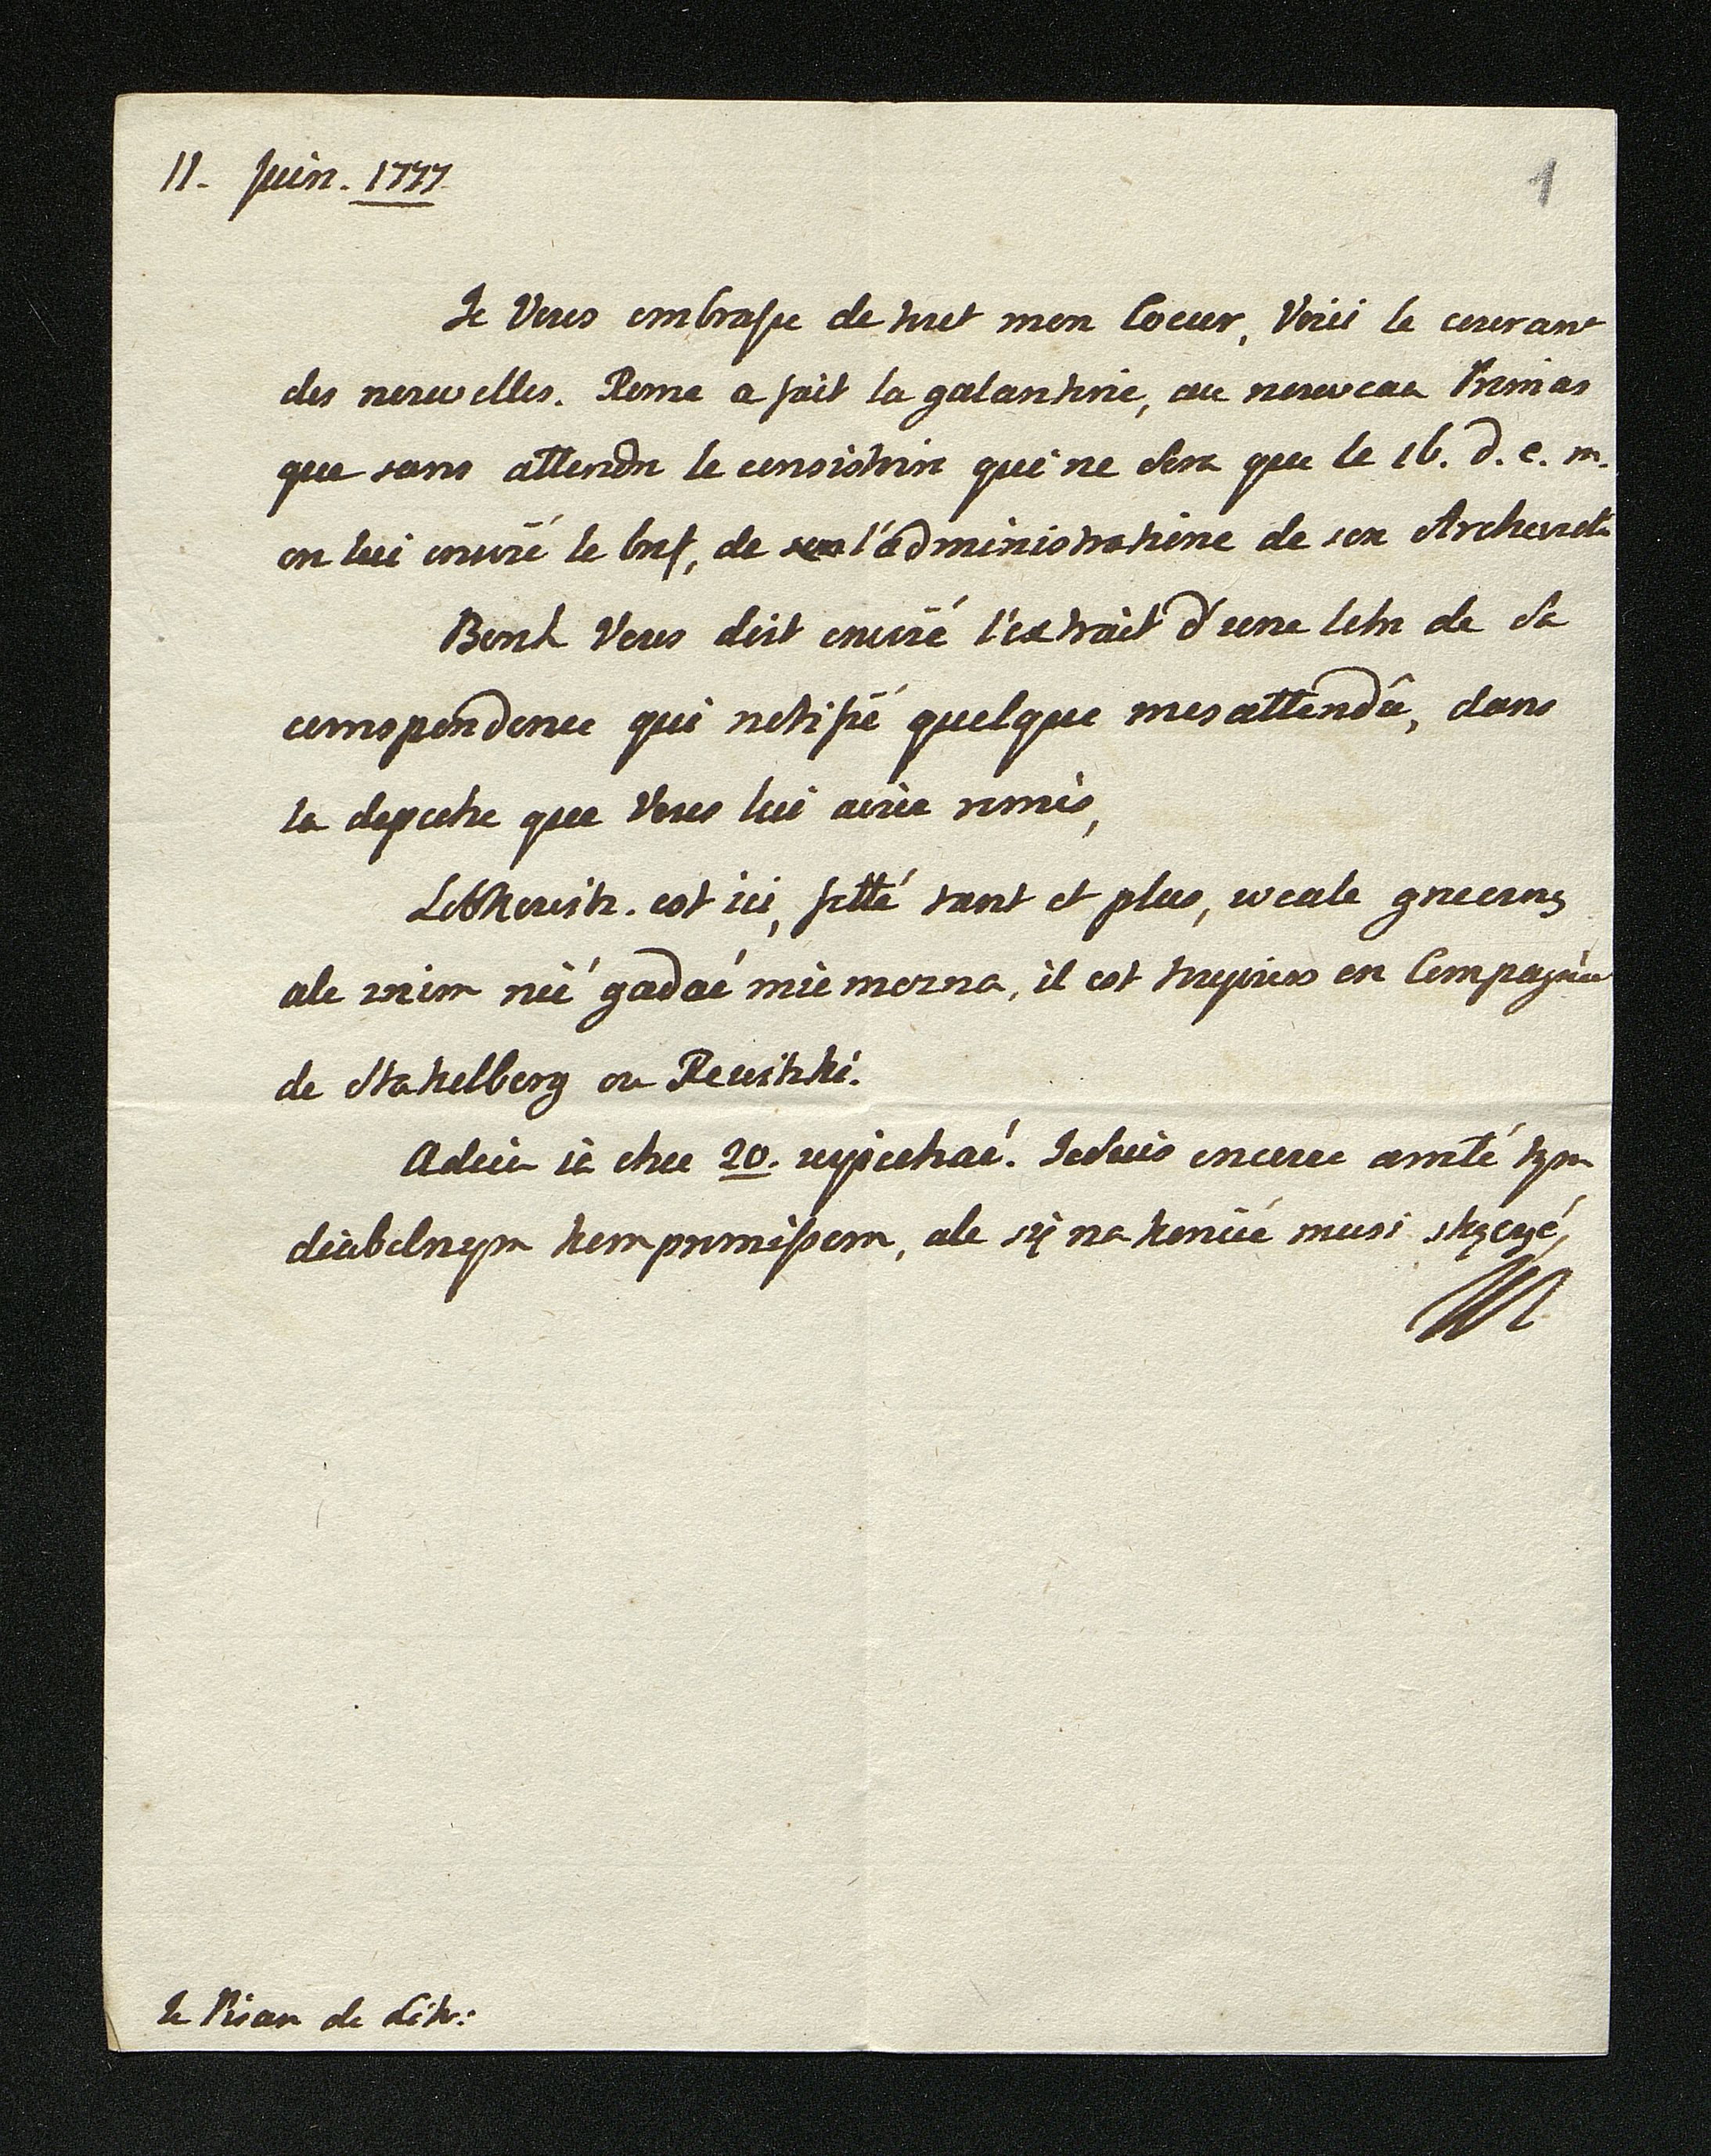 11. Juin. 1777.
1
Je Vous embrasse de tout mon Coeur, Voici le courant
des nouvelles. Rome a fait la galanterie, au nouveau Primas
que sans attendre le consistoire qui ne sera que le 16. d. c. m.
on lui envoié le bref, de l'administratione de son Archeveche
Bonk Vous doit envoié l'extrait d'une letre de Sa
correspondence qui notifié quelque mesattendû, dans
la depeche que Vous lui aviée remis,
Lobkowitz. est ici, fetté tant et plus, wcale grzeczny
ale z nim nié gadaé nie można, il est toujours en Compagnie
de Stakelberg ou Rewitzki.
Adieu ia chce 20. Je suis encore arreté tym
diabelnym kompromissem, ale się na koniéc musi skączyé,
le Pisar de Lit: